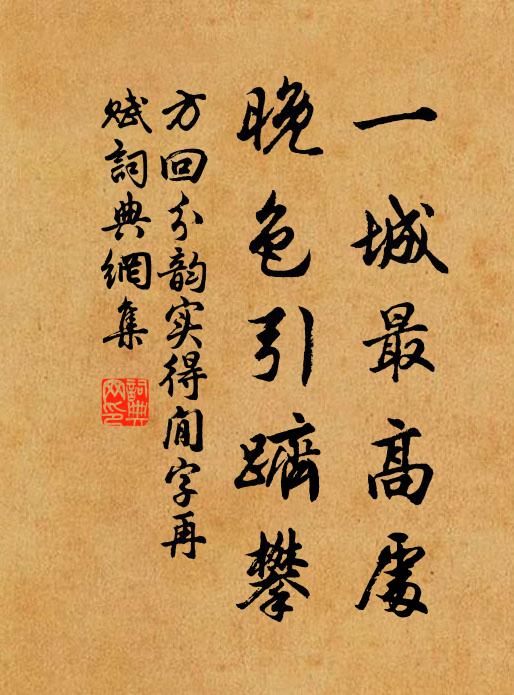 一城最高處
晩色引躋攀
方回分韵实得閒字再
赋詞典網集
詞典网印